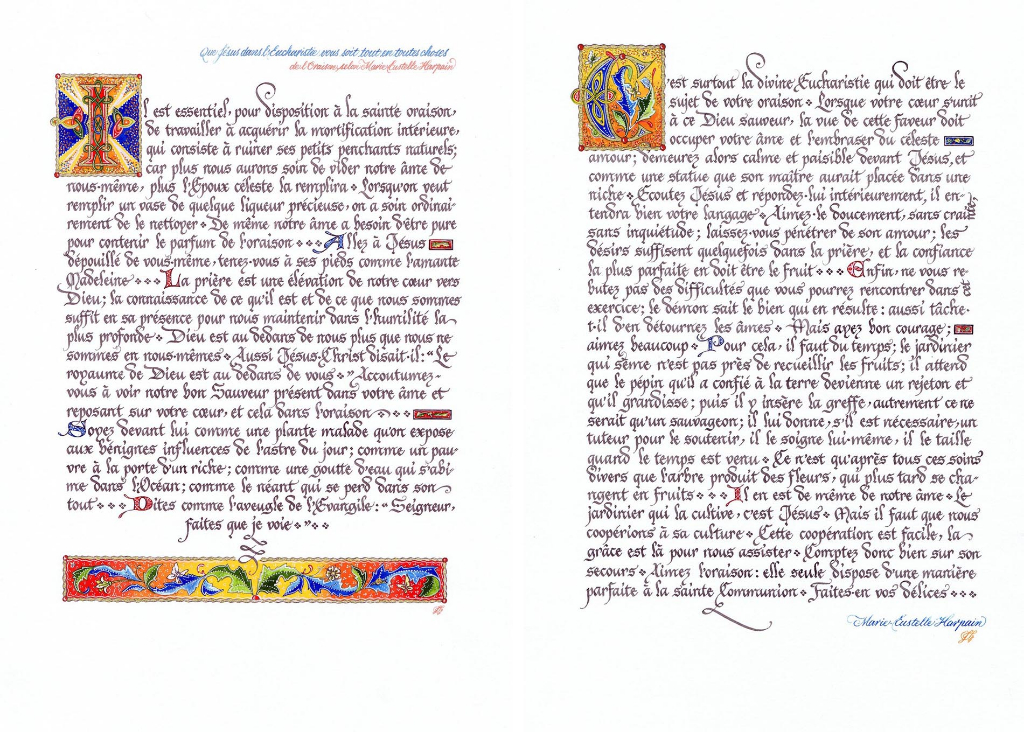 Que Jésus dans l'Eucharistie vous soit tout en toutes choses
de l'Oraison, selon Marie Eustelle Harpain
Il est essentiel, pour disposition à la sainte oraison,
de travailler à acquérir la mortification intérieure,
qui consiste à ruiner ses petits penchants naturels;
car plus nous aurons soin de vider notre âme de
nous-même, plus l'Epoux céleste la remplira. Lorsqu'on veut
remplir un vase de quelque liqueur précieuse, on a soin ordinai-
rement de le nettoyer. De même notre âme a besoin d'être pure
pour contenir le parfum de l'oraison... Allez à Jésus
dépouillé de vous-même, tenez-vous à ses pieds comme l'amante
Madeleine... La prière est une élévation de notre cœur vers
Dieu; la connaissance de ce qu'il est et de ce que nous sommes
suffit en sa présence pour nous maintenir dans l'humilité la
plus profonde. Dieu est au dedans de nous plus que nous ne
sommes en nous-mêmes. Aussi Jésus-Christ disait-il: "Le
royaume de Dieu est au dedans de vous." Accoutumez-
vous à voir notre bon Sauveur présent dans votre âme et
reposant sur votre cœur, et cela dans l'oraison...
Soyez devant lui comme une plante malade qu'on expose
aux bénignes influences de l'astre du jour; comme un pau-
vre à la porte d'un riche; comme une goutte d'eau qui s'abî-
me dans l'Océan; comme le néant qui se perd dans son
tout... Dites comme l'aveugle de l'Evangile: "Seigneur,
faites que je voie"...
C'est surtout la divine Eucharistie qui doit être le
sujet de votre oraison. Lorsque votre cœur s'unit
à ce Dieu sauveur, la vue de cette faveur doit
occuper votre âme et l'embraser du céleste
amour; demeurez alors calme et paisible devant Jésus, et
comme une statue que son maître aurait placée dans une
niche. Ecoutez Jésus et répondez-lui intérieurement, il en-
tendra bien votre langage. Aimez-le doucement, sans crainte,
sans inquiétude; laissez-vous pénétrer de son amour; les
désirs suffisent quelquefois dans la prière, et la confiance
la plus parfaite en doit être le fruit... Enfin, ne vous re-
butez pas des difficultés que vous pourrez rencontrer dans cet
exercice; le démon sait le bien qui en résulte: aussi tâche-
t-il d'en détournez les âmes. Mais ayez bon courage;
aimez beaucoup. Pour cela, il faut du temps; le jardinier
qui sème n'est pas près de recueillir les fruits; il attend
que le pépin qu'il a confié à la terre devienne un rejeton et
qu'il grandisse; puis il y insère la greffe, autrement ce ne
serait qu'un sauvageon; il lui donne, s'il est nécessaire, un
tuteur pour le soutenir, il le soigne lui-même, il le taille
quand le temps est venu. Ce n'est qu'après tous ces soins
divers que l'arbre produit des fleurs, qui plus tard se cha-
ngent en fruits... Il en est de même de notre âme. Le
jardinier qui la cultive, c'est Jésus. Mais il faut que nous
coopérions à sa culture. Cette coopération est facile, la
grâce est là pour nous assister. Comptez donc bien sur son
secours. Aimez l'oraison: elle seule dispose d'une manière
parfaite à la sainte Communion. Faites-en vos délices...
Marie Eustelle Harpain